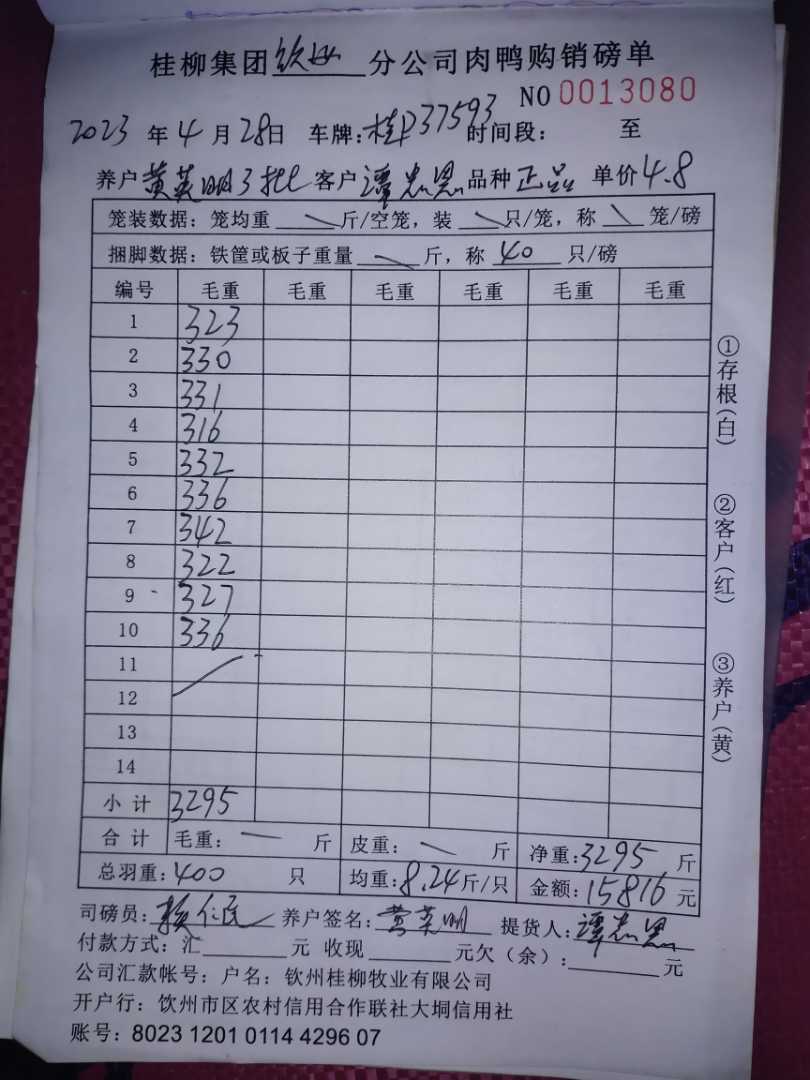 桂柳集团钦州分公司肉鸭购销磅单
NO 0013080
2023年4月28日 车牌:桂P37593 时间段: 至
养户黄英明3批 客户谭忠恩 品种正品 单价4.8
笼装数据: 笼均重 斤/空笼, 装 只/笼, 称 笼/磅
捆脚数据: 铁筐或板子重量 斤, 称 40 只/磅
编号 毛重 毛重 毛重 毛重 毛重 毛重
1 323
2 330
3 331
4 316
5 332
6 336
7 342
8 322
9 327
10 336
11
12
13
14
小计 3295
合计 毛重: 斤 皮重: 斤 净重:3295 斤
总羽重:400 只 均重:8.24斤/只 金额:15816元
司磅员: 赖仁民 养户签名: 黄英明 提货人: 谭忠恩
付款方式: 汇 元 收现 元欠(余): 元
公司汇款帐号: 户名: 钦州桂柳牧业有限公司
开户行: 钦州市区农村信用合作联社大垌信用社
账号: 8023 1201 0114 4296 07
①存根(白)
②客户(红)
③养户(黄)